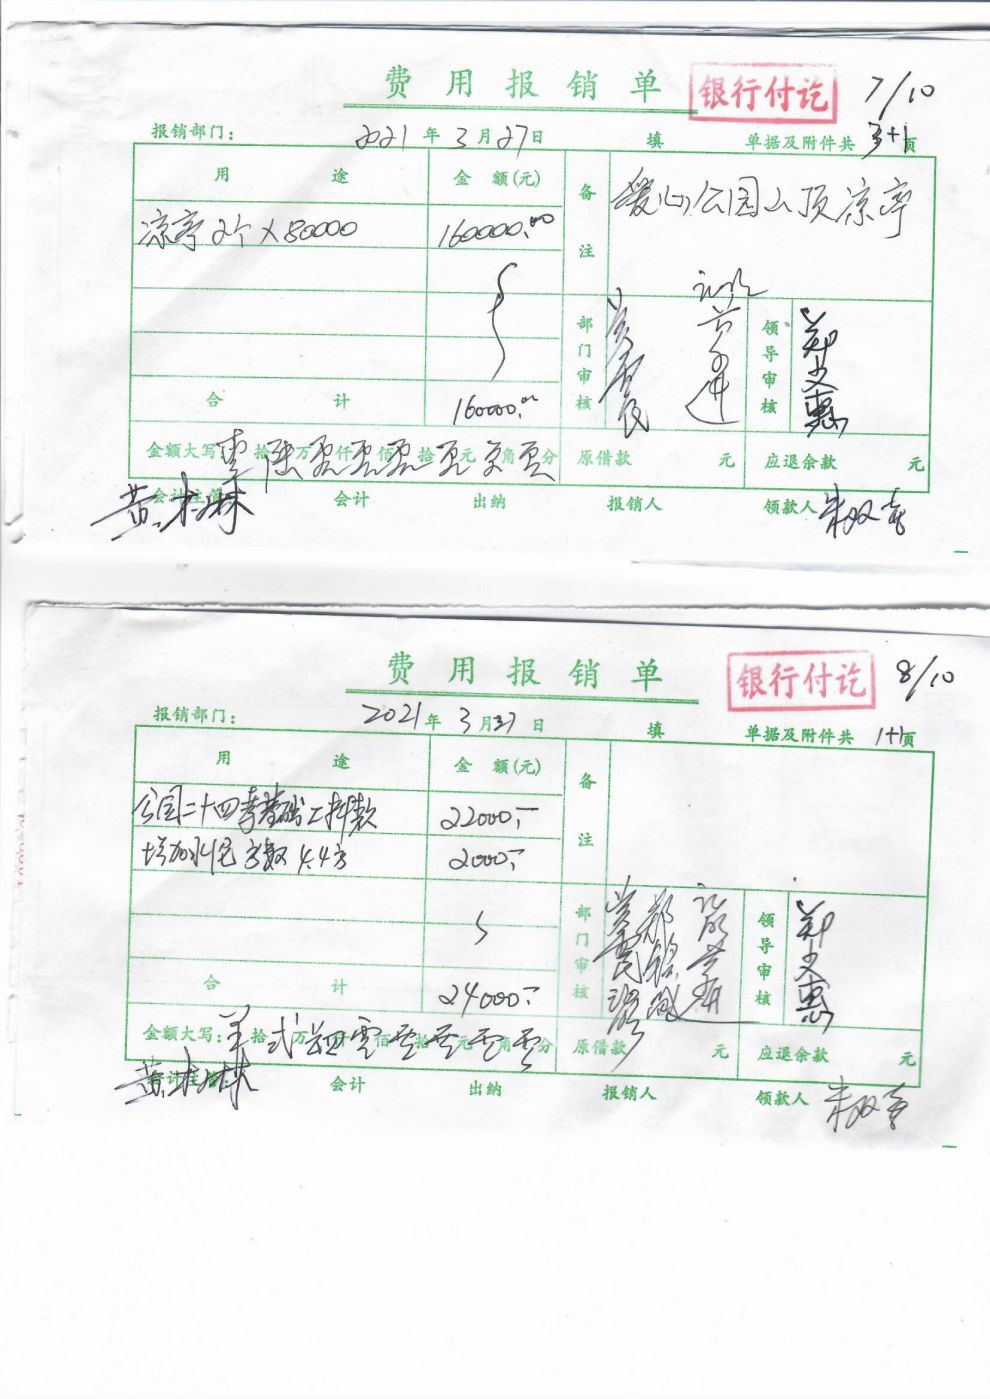 费用报销单 银行付讫 7/10
报销部门： 2021年3月27日 填 单据及附件共3+1页
用途 金额(元) 备注 爱心公园山顶凉亭
凉亭2个×80000 160000.00
部门审核 领导审核 郑文惠
合计 160000.00
金额大写 壹拾陆万零仟零佰零拾零元零角零分 原借款 元 应退余款 元
会计主管 黄木林 会计 出纳 报销人 领款人 朱双喜
费用报销单 银行付讫 8/10
报销部门： 2021年3月27日 填 单据及附件共1+1页
用途 金额(元) 备注
公园二十四孝基础工料款 22000.-
增加水泥方数4.4方 2000.-
部门审核 领导审核 郑文惠
合计 24000.-
金额大写： 拾 万 仟零佰零拾零元零角零分 原借款 元 应退余款 元
会计主管 黄木林 会计 出纳 报销人 领款人 朱双喜